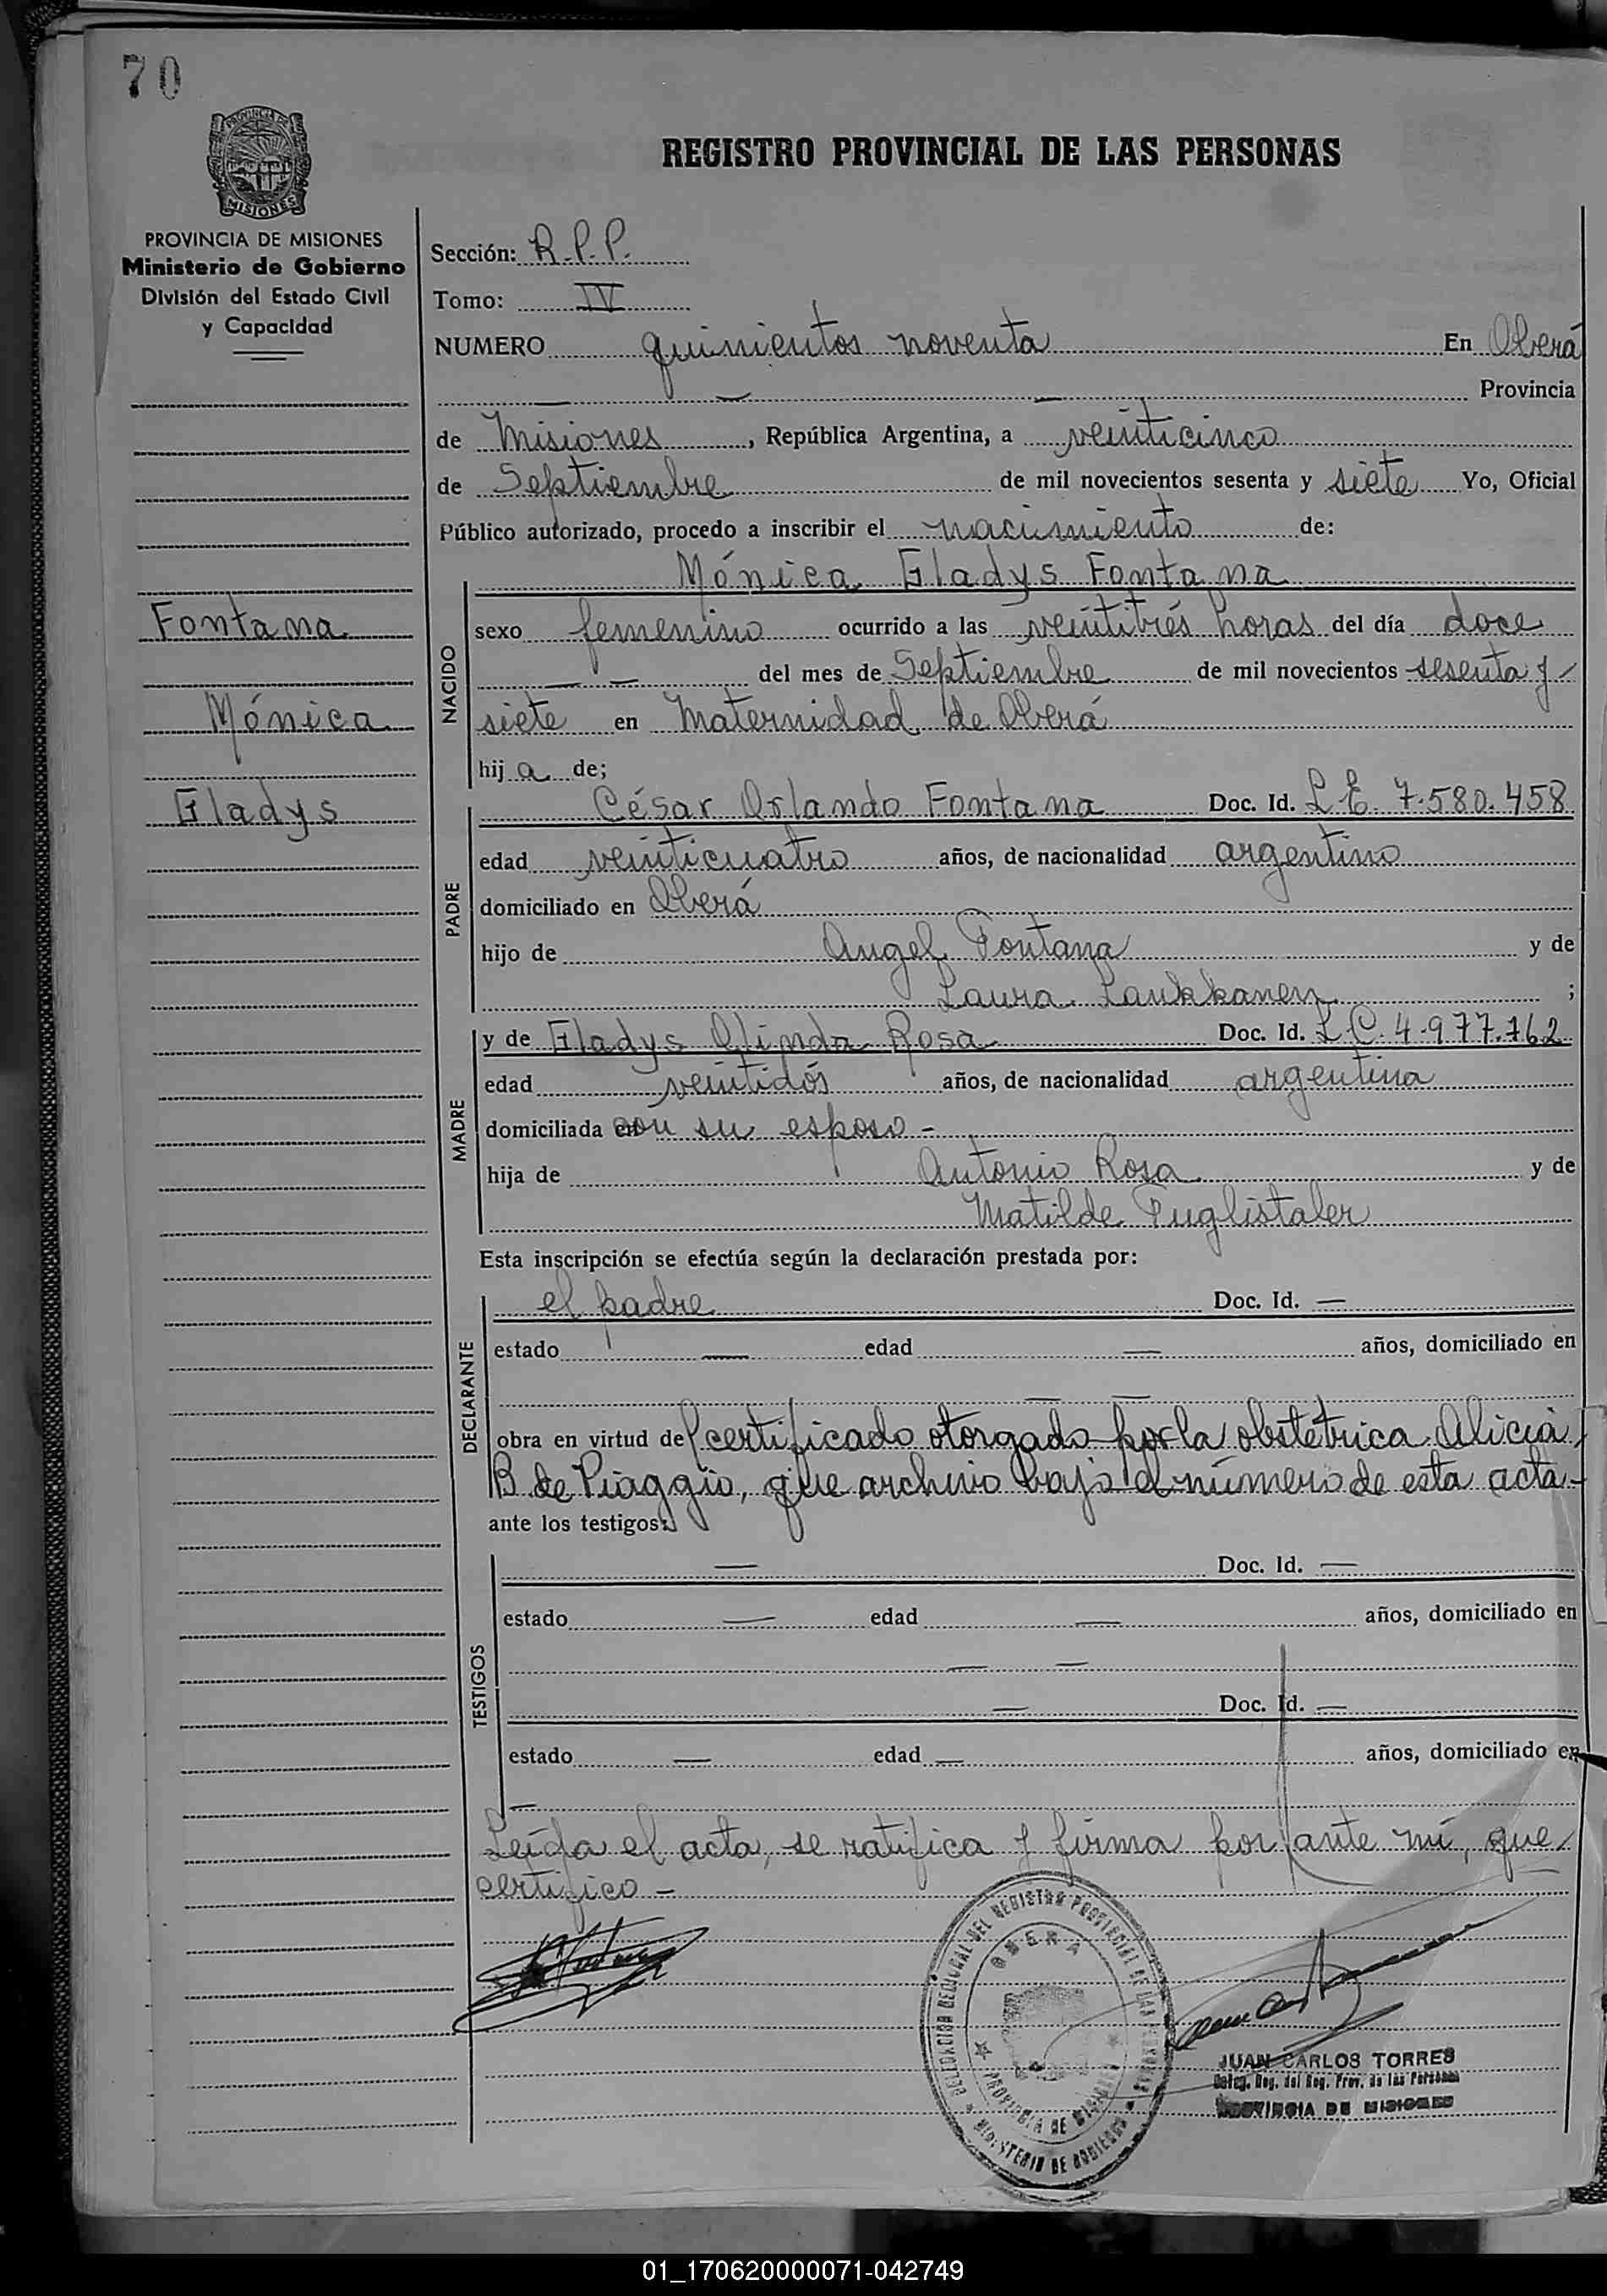 70
PROVINCIA DE
MISIONES
REGISTRO PROVINCIAL DE LAS PERSONAS
PROVINCIA DE MISIONES
Ministerio de Gobierno
División del Estado Civil
y Capacidad
Fontana
Mónica
Gladys
Sección: R.P.P.
Tomo: IV
NUMERO quinientos noventa En Oberá
Provincia
de Misiones, República Argentina, a veinticinco
de Septiembre de mil novecientos sesenta y siete Yo, Oficial
Público autorizado, procedo a inscribir el nacimiento de:
NACIDO
Mónica Gladys Fontana
sexo femenino ocurrido a las veintitrés horas del día doce
— — del mes de Septiembre de mil novecientos sesenta y -
siete en Maternidad de Oberá
hij a de;
PADRE
César Orlando Fontana Doc. Id. L.E. 7.580.458
edad veinticuatro años, de nacionalidad argentino
domiciliado en Oberá
hijo de Angel Fontana y de
Laura Laukkanen ;
MADRE
y de Gladys Olinda Rosa Doc. Id. L.C. 4.977.762
edad veintidós años, de nacionalidad argentina
domiciliada con su esposo -
hija de Antonio Rosa y de
Matilde Puglistaler
Esta inscripción se efectúa según la declaración prestada por:
DECLARANTE
el padre Doc. Id. —
estado — edad — años, domiciliado en
— —
obra en virtud del certificado otorgado por la obstetrica Alicia
B. de Piaggio, que archivo bajo el número de esta acta -
ante los testigos:
TESTIGOS
— Doc. Id. —
estado — edad — años, domiciliado en
— —
— Doc. Id. —
estado — edad — años, domiciliado en
—
Leída el acta, se ratifica y firma por ante mí, que
certifico -
DELEGACION REGIONAL DEL REGISTRO PROVINCIAL DE LAS PERSONAS
OBERA
PROVINCIA DE MISIONES
MINISTERIO DE GOBIERNO
JUAN CARLOS TORRES
Deleg. Reg. del Reg. Prov. de las Personas
PROVINCIA DE MISIONES
01_170620000071-042749